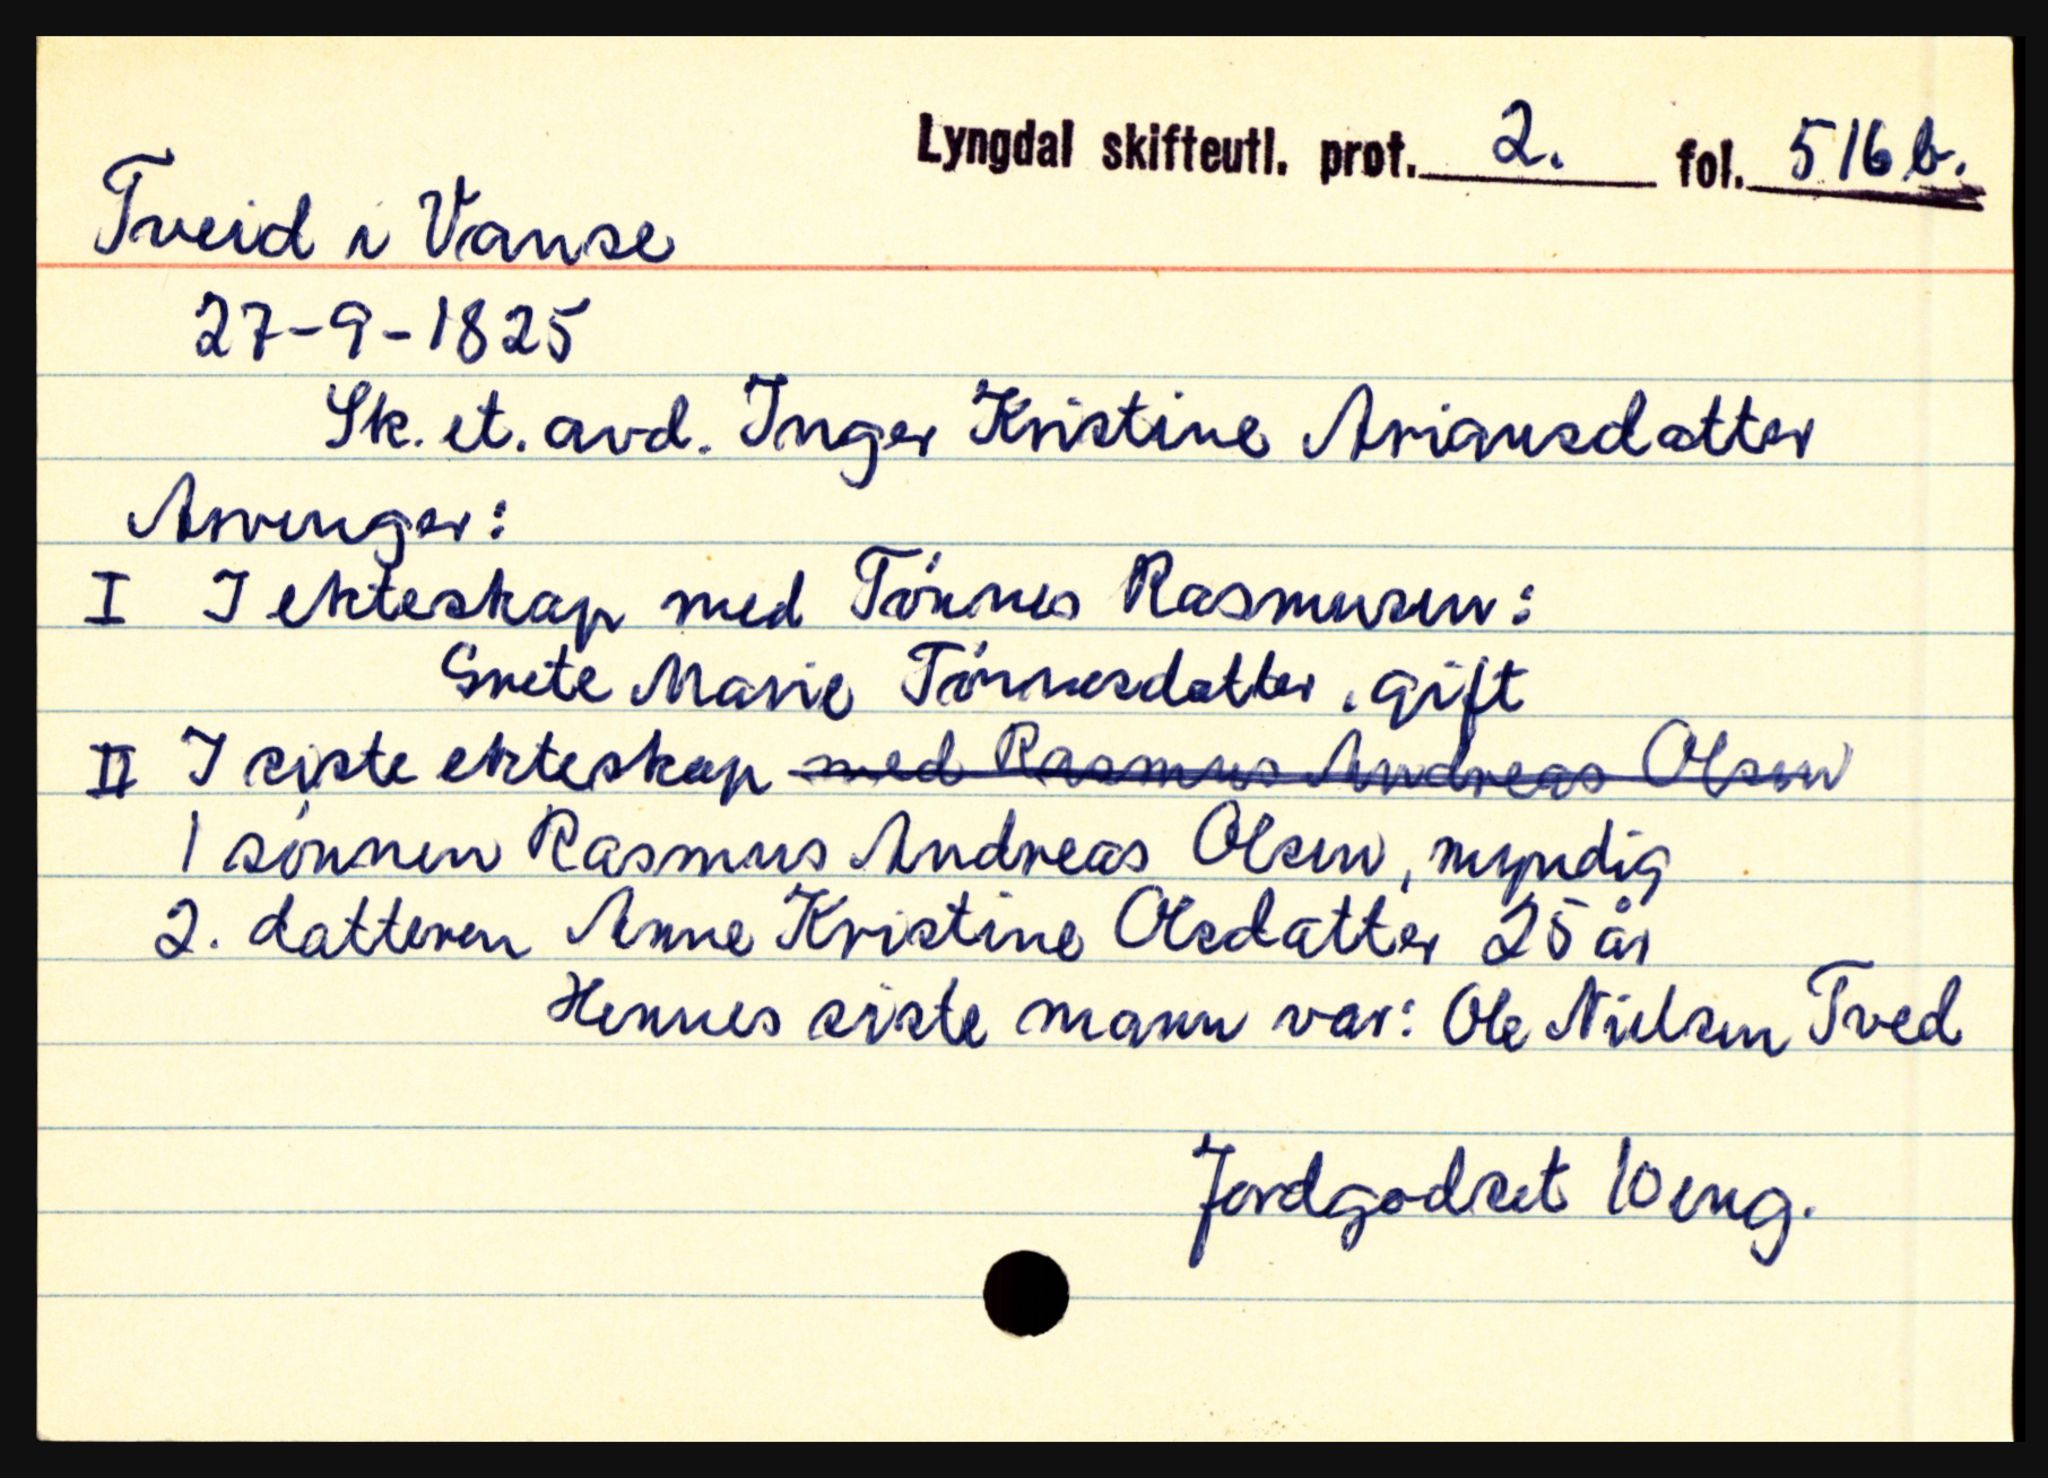 Lyngdal skifteutl. prot. 2. fol. 516b.
Tveid i Vanse
27-9-1825
Sk. et. avd. Inger Kristine Ariansdatter
Arvinger:
I I ekteskap med Tönnes Rasmusen:
Grete Marie Tönnesdatter. gift
II I siste ekteskap med Rasmus Andreas Olsen
1 sönnen Rasmus Andreas Olsen, myndig
2. datteren Anne Kristine Olsdatter 25 år
Hennes siste mann var: Ole Nielsen Tved
Jordgodset 10 eng.